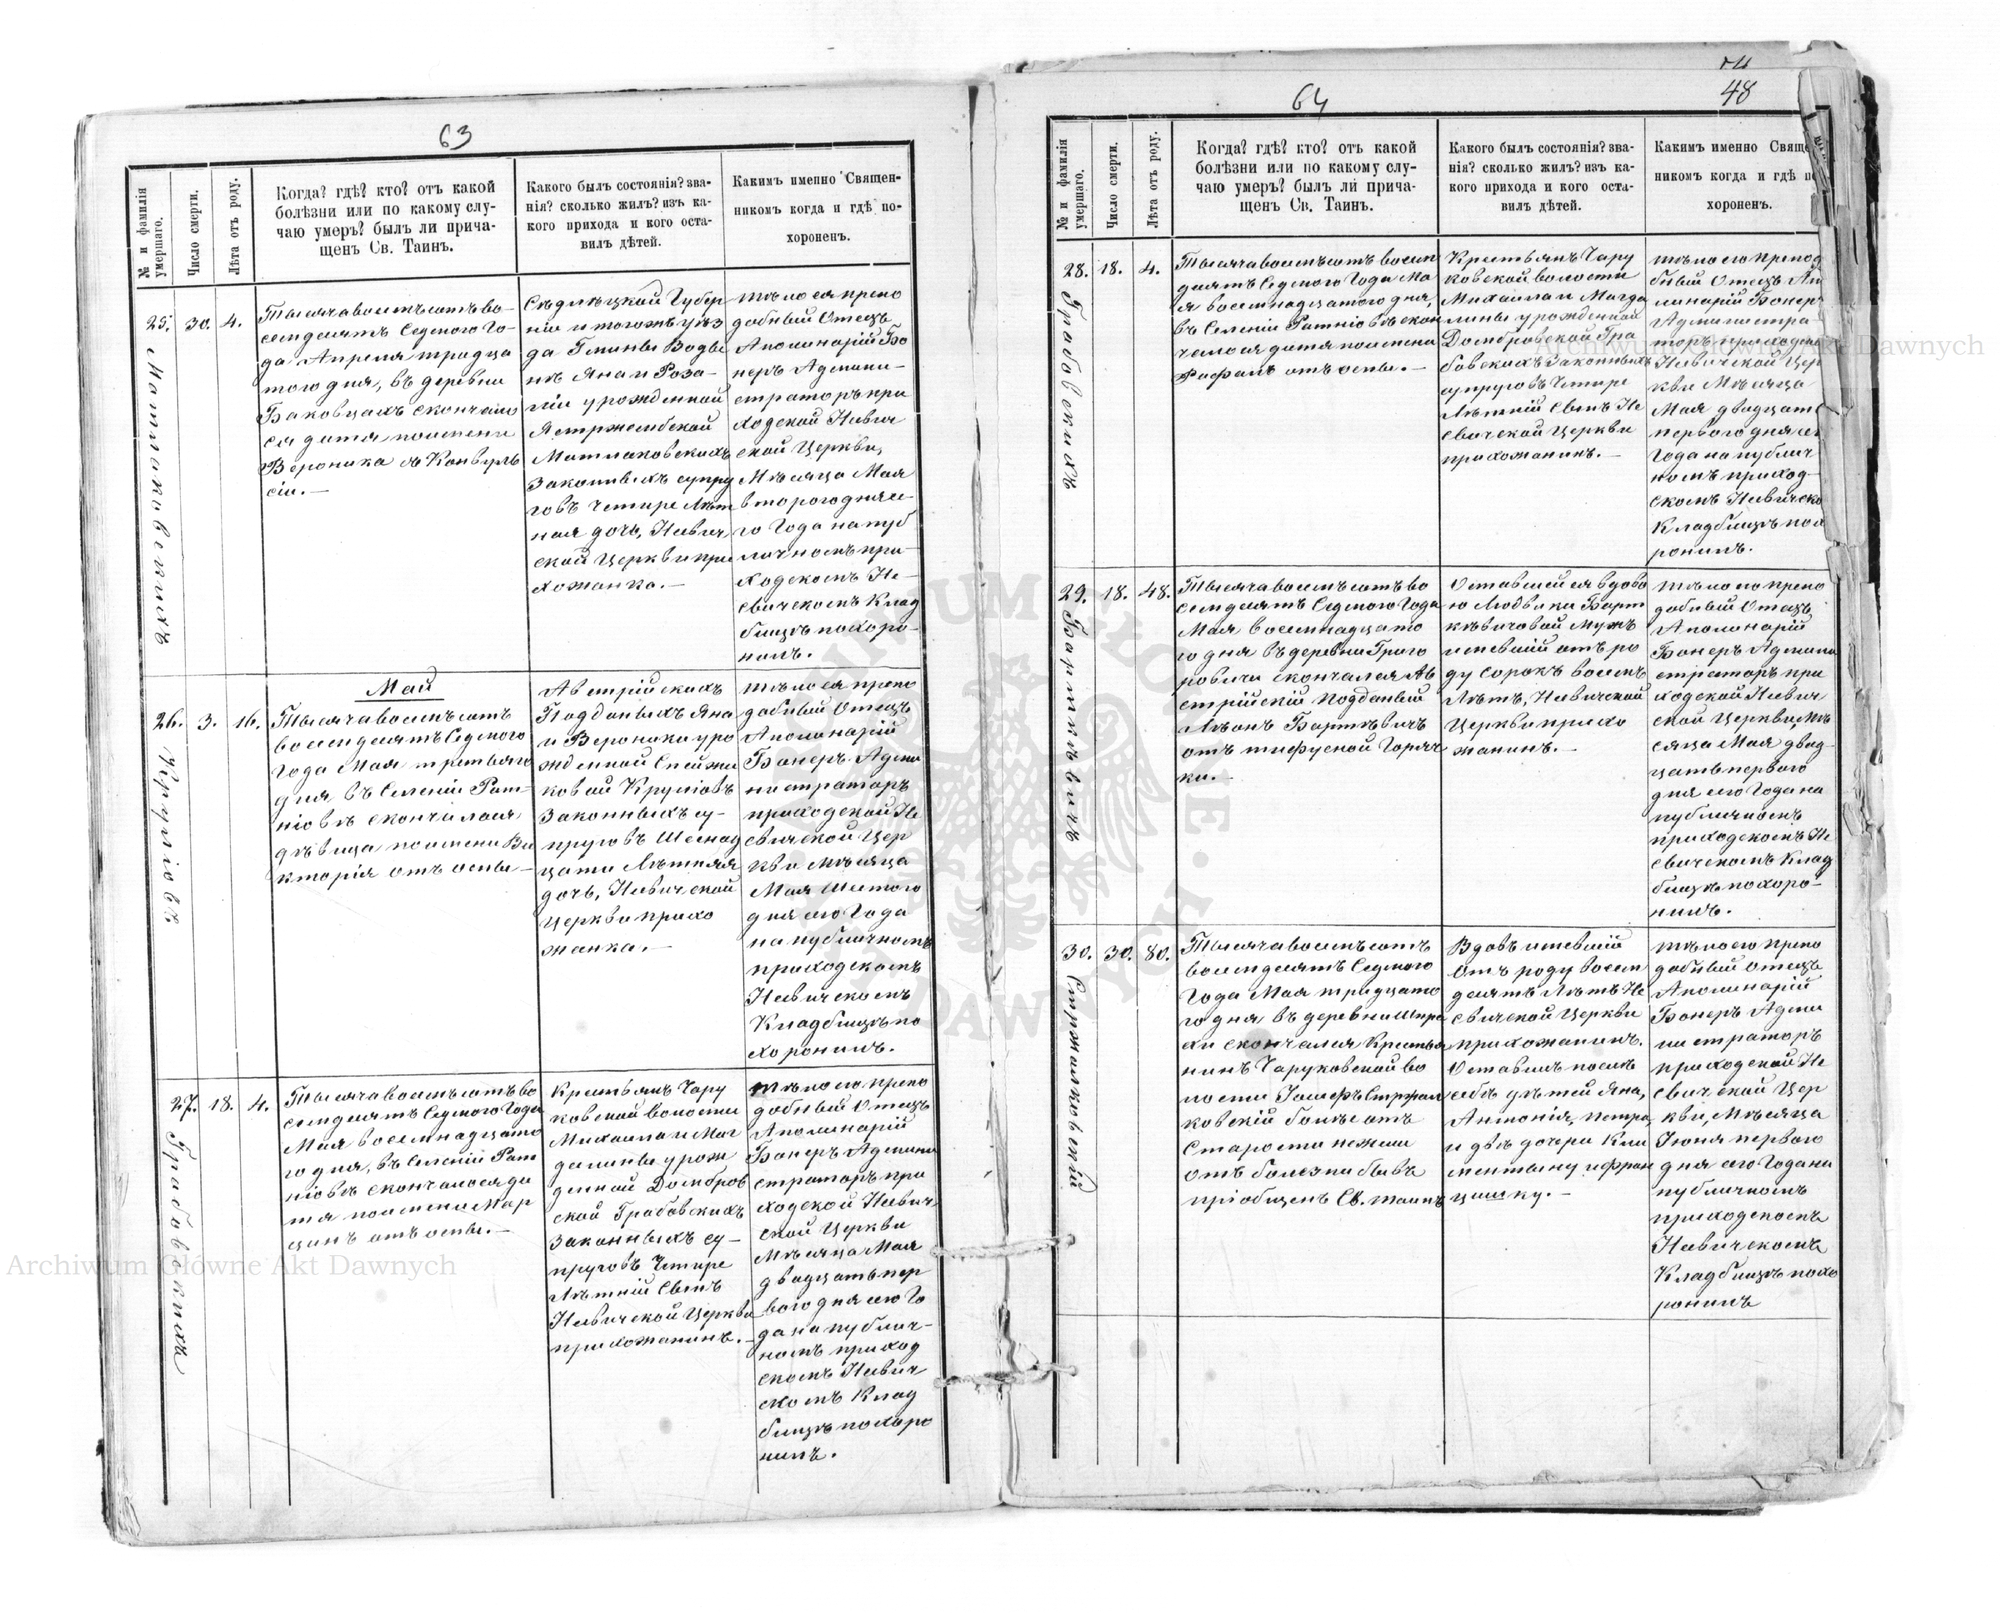 63
№ и фамилія умершаго.
Число смерти.
Лѣта отъ роду.
Когда? гдѣ? кто? отъ какой
болѣзни или по какому слу-
чаю умеръ? былъ ли прича-
щенъ Св. Таинъ.
Какого былъ состоянія? зва-
нія? сколько жилъ? изъ ка-
кого прихода и кого оста-
вилъ дѣтей.
Какимъ именно Священ-
никомъ когда и гдѣ по-
хороненъ.
25. 30. 4.
Матлаковскихъ
Тысяча восемьсотъ во-
семдесятъ Седмого Го-
да Апреля тридца
того дня, въ деревни
Баковцахъ скончало
ся дитя поимени
Вероника съ Конвуль
сіи.—
Сѣдлѣцкой Губер
ніи и тогожъ уѣз
да Гмины Воды
нѣ Яна и Роза-
ліи урожденной
Ястржембской
Матлаковскихъ
Законныхъ супру
говъ четыре лѣт
ная дочь, Несвич
ской Церкви при
хожанка.—
тѣло ея препо
добный Отецъ
Аполинарій Бо
неръ Админи-
страторъ при
ходской Несвич
ской Церкви,
Мѣсяца Мая
второго дня се-
го Года на пуб
личномъ при-
ходскомъ Не-
свичскомъ Клад
бищѣ похоро-
нилъ.
Май
26. 3. 16.
Круліовъ
Тысяча восемьсотъ
восемдесятъ Седмого
Года Мая третьяго
дня въ Селеніи Рат-
ніовѣ скончилася
дѣвица поимени Ви
кторія отъ оспы—
Австрійскихъ
Подданыхъ Яна
и Веронико уро
жденной Спейжи
ковой Круліовъ
Законныхъ су-
пруговъ Шеснад
цати Лѣтняя
дочь, Несвичской
Церкви прихо
жанка.—
тѣло ея препо
добный Отецъ
Аполинарій
Бонеръ Адми
нистраторъ
приходской Не
свичской Цер
кви мѣсяца
Мая Шестого
дня сего Года
на публичномъ
приходскомъ
Несвичскомъ
Кладбищѣ по
хоронилъ.
27. 18. 4.
Грабовскихъ
Тысяча восемьсотъ во
семдесятъ Седмого Года
Мая восемнадцато
го дня, въ Селеніи Рат
ніовѣ скончалося ди
тя поимени Мар
цинъ отъ оспы.—
Крестьянъ Чару
ковской волости
Михаила и Маг
далины урож
денной Домбров
ской Грабовскихъ
Законныхъ су-
пруговъ Четыре
лѣтній Сынъ
Несвичской Церкви
прихожанинъ.—
тѣло его препо
добный Отецъ
Аполинарій
Бонеръ Админи
страторъ при
ходской Несвич
ской Церкви
Мѣсяца Мая
двадцать пер
вого дня сего Го
да на публич-
номъ приход
скомъ Несвич
скомъ Клад
бищѣ похоро
нилъ.
64
48
№ и фамилія умершаго.
Число смерти.
Лѣта отъ роду.
Когда? гдѣ? кто? отъ какой
болѣзни или по какому слу-
чаю умеръ? былъ ли прича-
щенъ Св. Таинъ.
Какого былъ состоянія? зва-
нія? сколько жилъ? изъ ка-
кого прихода и кого оста-
вилъ дѣтей.
Какимъ именно Свяще
никомъ когда и гдѣ по
хороненъ.
28. 18. 4.
Грабовскихъ
Тысяча восемьсотъ восем
десятъ Седмого Года Ма
я восемнадцатого дня,
въ Селеніи Ратніовѣ скон
чалося дитя поимени
Рафалъ отъ оспы.—
Крестьянъ Чару
ковской волости
Михаила и Магда
лины урожденной
Домбровской Гра
бовскихъ Законныхъ
супруговъ Четыре
Лѣтній Сынъ Не
свичской Церкви
прихожанинъ.—
тѣло его препод
бный Отецъ Ап
линарій Бонеръ
Администра-
торъ приходской
Несвичской Цер
кви Мѣсяца
Мая двадцать
первого дня се
Года на публич
номъ приход-
скомъ Несвичско
Кладбищѣ пох
ронилъ.
29. 18. 48.
Барткѣвичъ
Тысяча восемьсотъ во
семдесятъ Седмого Года
Мая восемнадцато
го дня въ деревни Григо
ровичи скончался Ав
стрійскій Подданый
Лѣонъ Барткѣвичъ
отъ тифусной Горяч
ки.—
Оставшейся вдово
ю Людвики Барт
кѣвичовой мужъ
имевшій отъ ро
ду сорокъ восемъ
Лѣтъ, Несвичской
Церкви прихо
жанинъ.—
тѣло его препо
добный Отецъ
Аполинарій
Бонеръ Админи
страторъ при
ходской Несвич
ской Церкви Мѣ
сяца Мая двад-
цать первого
дня сего Года на
публичномъ
приходскомъ Не
свичскомъ Клад
бищѣ похоро-
нилъ.
30. 30. 80.
Стржалковскій
Тысяча восемьсотъ
восемдесятъ Седмого
Года Мая тридцато
го дня въ деревни Шпра
хи скончался Крестья
нинъ Чаруковской во
лости Іосифъ Стржал
ковскій болѣе отъ
Старости нежели
отъ болезни бывъ
пріобщенъ Св. таинъ
Вдовъ имевшій
отъ роду восем
десятъ Лѣтъ Не
свичской Церкви
прихожанинъ.
Оставилъ после
себѣ дѣтей Яна,
Антонія, Петра,
и двѣ дочери Кли
ментыну и Фран
цишку.—
тѣло его препо
добный Отецъ
Аполинарій
Бонеръ Адми
нистраторъ
приходской Не
свичской Цер
кви, Мѣсяца
Іюня первого
дня сего Года на
публичномъ
приходскомъ
Несвичскомъ
Кладбищѣ похо
ронилъ
Archiwum Główne Akt Dawnych
Archiwum Główne Akt Dawnych
ARCHIWUM GŁÓWNE AKT DAWNYCH